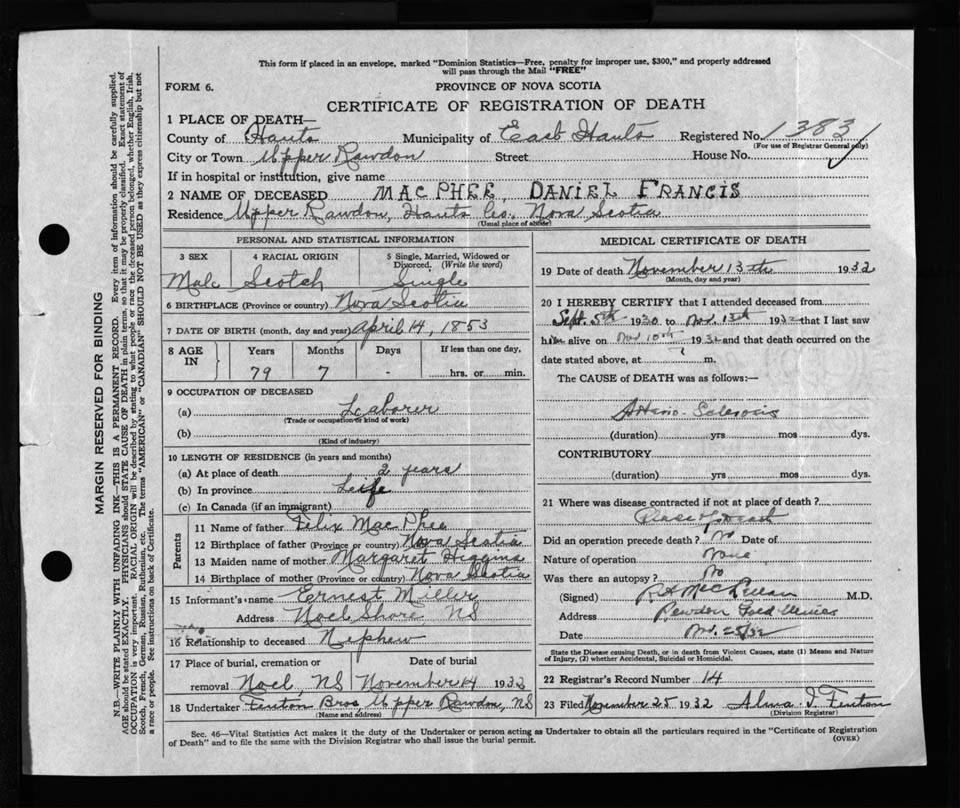 This form if placed in an envelope, marked "Dominion Statistics—Free, penalty for improper use, $300," and properly addressed
will pass through the Mail "FREE"
FORM 6.
PROVINCE OF NOVA SCOTIA
CERTIFICATE OF REGISTRATION OF DEATH
1 PLACE OF DEATH—
County of Hants Municipality of East Hants Registered No. 1383
(For use of Registrar General only)
City or Town Upper Rawdon Street House No.
If in hospital or institution, give name
2 NAME OF DECEASED MACPHEE, DANIEL FRANCIS
Residence Upper Rawdon, Hants Co. Nova Scotia
(Usual place of abode)
PERSONAL AND STATISTICAL INFORMATION
3 SEX 4 RACIAL ORIGIN 5 Single, Married, Widowed or
Divorced. (Write the word)
Male Scotch Single
6 BIRTHPLACE (Province or country) Nova Scotia
7 DATE OF BIRTH (month, day and year) April 14, 1853
8 AGE IN Years Months Days If less than one day,
79 7 - hrs. or min.
9 OCCUPATION OF DECEASED
(a) Laborer
(Trade or occupation or kind of work)
(b)
(Kind of industry)
10 LENGTH OF RESIDENCE (in years and months)
(a) At place of death 2 years
(b) In province Life
(c) In Canada (if an immigrant)
Parents
11 Name of father Felix MacPhee
12 Birthplace of father (Province or country) Nova Scotia
13 Maiden name of mother Margaret Higgins
14 Birthplace of mother (Province or country) Nova Scotia
15 Informant's name Ernest Miller
Address Noel Shore NS
16 Relationship to deceased Nephew
17 Place of burial, cremation or Date of burial
removal Noel, NS November 14 1932
18 Undertaker Fenton Bros, Upper Rawdon, NS
(Name and address)
MEDICAL CERTIFICATE OF DEATH
19 Date of death November 13th 1932
(Month, day and year)
20 I HEREBY CERTIFY that I attended deceased from
Sept. 5th 1930 to Nov. 13th 1932 that I last saw
him alive on Nov 10th 1932 and that death occurred on the
date stated above, at ? m.
The CAUSE of DEATH was as follows:—
Arterio-Sclerosis
(duration) yrs mos dys.
CONTRIBUTORY
(duration) yrs mos dys.
21 Where was disease contracted if not at place of death?
Place of death
Did an operation precede death? No Date of
Nature of operation None
Was there an autopsy? No
(Signed) R.H. MacLellan M.D.
Address Rawdon Gold Mines
Date Nov. 25/32
State the Disease causing Death, or in death from Violent Causes, state (1) Means and Nature
of Injury, (2) whether Accidental, Suicidal or Homicidal.
22 Registrar's Record Number 14
23 Filed November 25 1932 Alma I. Fenton
(Division Registrar)
Sec. 46—Vital Statistics Act makes it the duty of the Undertaker or person acting as Undertaker to obtain all the particulars required in the "Certificate of Registration
of Death" and to file the same with the Division Registrar who shall issue the burial permit.
(OVER)
MARGIN RESERVED FOR BINDING
N.B. WRITE PLAINLY WITH UNFADING INK—THIS IS A PERMANENT RECORD. Every item of information should be carefully supplied.
AGE should be stated EXACTLY. PHYSICIANS should STATE CAUSE OF DEATH in plain terms, so that it may be properly classified. Exact statement of
OCCUPATION is very important. RACIAL ORIGIN will be described by stating to what people or race the deceased person belonged, whether English, Irish,
Scotch, French, German, Russian, Ruthenian, etc. The terms "AMERICAN" or "CANADIAN" SHOULD NOT BE USED as they express citizenship but not
a race or people. See instructions on back of Certificate.